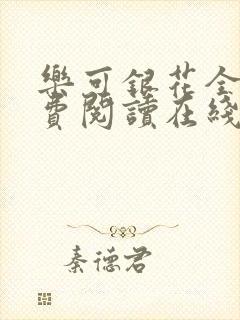 樂可銀花全
費閱讀在綫
秦德君